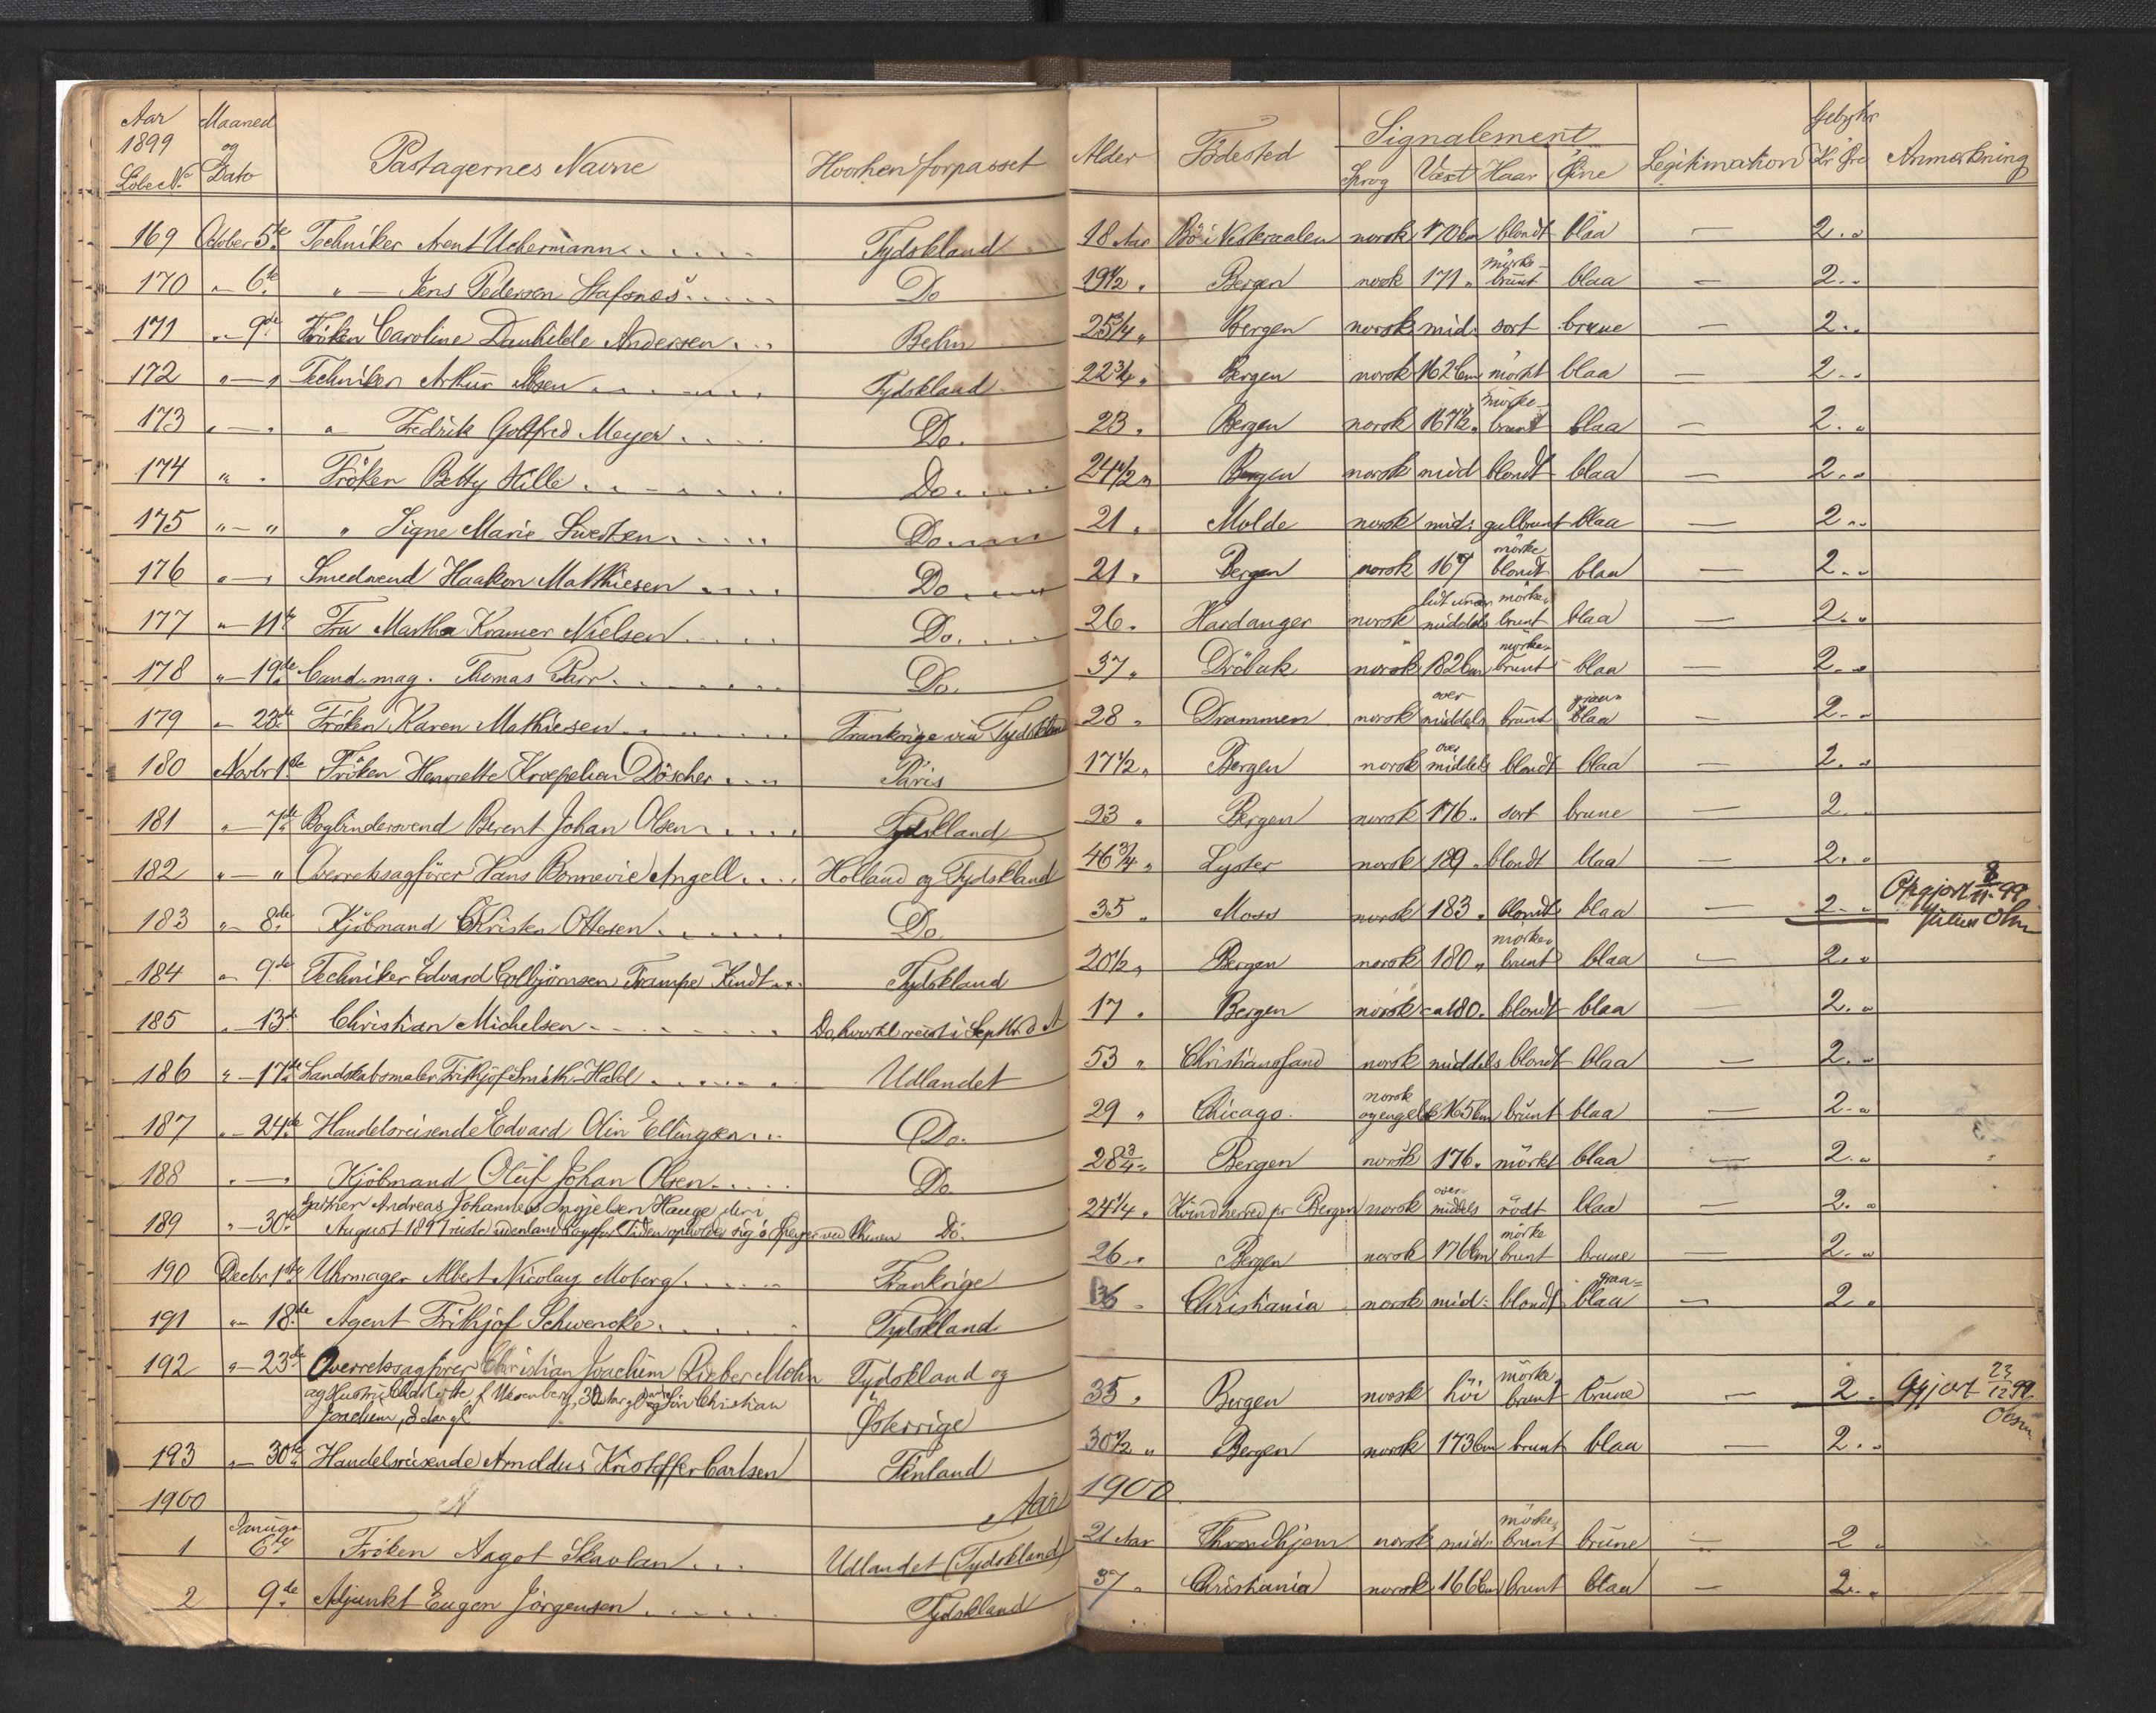 Aar 1899 Løbe No. Maaned og Dato Passagernes Navne Hvorhen forpasset Alder Födested Signalement Sprog Växt Haar Öine Legitimation Gebyhr Kr Öre Anmærkning
169 October 5te Techniker Arent Uchermann Tydskland 18 Aar Bö i Vesteraalen norsk 170 cm blondt blaa — 2 "
170 " 6te " — Jens Pedersen Stafsnes Do 19 1/2 " Bergen norsk 171 " mörke-brunt blaa — 2 "
171 " 9de Fröken Caroline Danhilde Andersen 25 3/4 " Bergen norsk mid: sort brune — 2 "
172 " — " Techniker Arthur Tydskland 22 3/4 " Bergen norsk 162 cm mörkt blaa — 2 "
173 " — " " Fredrik Gotfred Meyer Do. 23 " Bergen norsk 167 1/2 " mörke-brunt blaa — 2 "
174 " " Fröken Betty Hille Do 24 1/2 " Bergen norsk mid blondt blaa — 2 "
175 " — " " Signe Marie Do 21 " Molde norsk mid: gulbrunt blaa — 2 "
176 " — " Smedsvend Haakon Mathiesen Do 21 " Bergen norsk 167 mörke blondt blaa — 2 "
177 " — 11te Fru Martha Kramer Nielsen Do. 26 " Hardanger norsk lidt under middels mörke brunt blaa — 2 "
178 " — 19de Cand. mag. Thomas Do. 37 " Dröbak norsk 182 cm mörke brunt blaa — 2 "
179 " 23de Fröken Karen Mathiesen Frankrige via Tydskland 28 " Drammen norsk over middels brunt graa blaa — 2 "
180 Novbr 1ste Fröken Henriette Kroepelien Döscher Paris 17 1/2 " Bergen norsk over middels blondt blaa — 2 "
181 " — 7de Bogbindersvend Berent Johan Olsen Tydskland 23 " Bergen norsk 176 " sort brune — 2 "
182 " — " Overretssagförer Hans Bonnevie Angell Holland og Tydskland 46 3/4 " Lyster norsk 189 " blondt blaa — 2 "
183 " — 8de Kjöbmand Christen Ottesen Do. 35 " Moss norsk 183 " blondt blaa — 2 " Opgjort 8/11 99
184 " 9de Techniker Edvard Colbjörnsen Trampe Kindt Tydskland 20 1/2 " Bergen norsk 180 " mörke brunt blaa — 2 "
185 " — 13de Christian Michelsen Do, hvortil reist i Septbr. d A 17 " Bergen norsk ca 180 " blondt blaa — 2 "
186 " — 17de Landskabsmaler Frithjof Smith-Hald Udlandet 53 " Christianssand norsk middels blondt blaa — 2 "
187 " — 24de Handelsreisende Edvard Olin Ellingsen Do. 29 " Chicago norsk og engelsk 165 cm brunt blaa — 2 "
188 " — " Kjöbmand Oluf Johan Olsen Do 28 3/4 " Bergen norsk 176 " mörkt blaa — 2 "
189 " — 30te Gartner Andreas Johannes Ingjelsen Hauge, der i
August 1897 reiste udenlands og for Tiden opholder sig i Speyer ved Rhinen Do. 24 1/4 " Kvindherred pr Bergen norsk over middels rödt blaa — 2 "
190 Decbr 1ste Uhrmager Albert Nicolay Moberg Frankrige 26 " Bergen norsk 176 cm mörke brunt brune — 2 "
191 " 18de Agent Frithjof Schwencke Tydskland 36 " Christiania norsk mid: blondt graa-blaa — 2 "
192 " — 23de Overretssagförer Christian Joachim Rieber Mohn Tydskland og
og Hustru Charlotte f. 30 Aar gl og Sön Christian
Joachim, Aar gl Østerrige 35 " Bergen norsk höi mörke brunt brune — 2 " Opgjort 23/12 99.
193 " — 30te Handelsreisende Arnoldus Kristoffer Carlsen Finland 30 1/2 " Bergen norsk 173 cm brunt blaa — 2 "
1900 Aar 1900
1 Januar 6te Fröken Aagot Skavlan Udlandet (Tydskland) 21 Aar Throndhjem norsk mid: mörke brunt brune — 2 "
2 9de Adjunkt Eugen Jörgensen Tydskland 37 " Christiania norsk 166 cm brunt blaa — 2 "